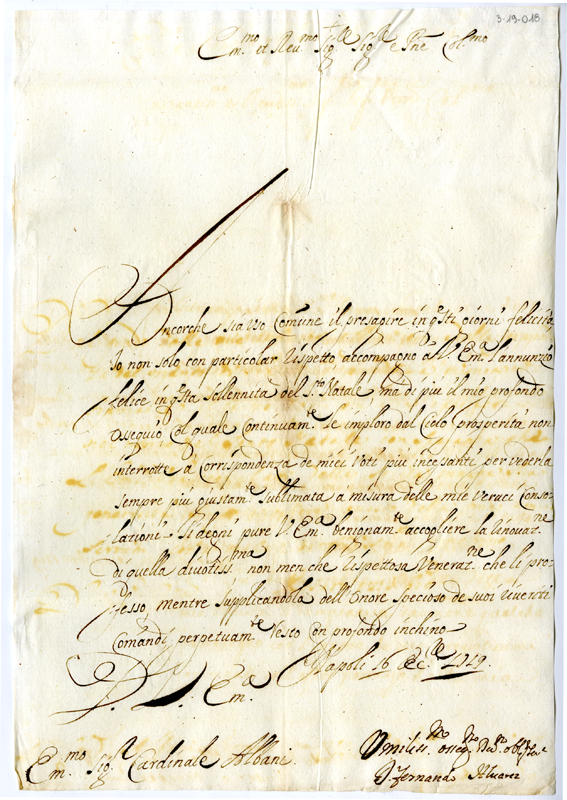 3-19-018
Em.mo et Reu.mo Sig.re Sig.re e Pne Col.mo
Ancorche sia uso comune il presagire in q.sti giorni felicità
Io non solo con particolar rispetto accompagno a V. Em.a l'annunzio
felice in q.sta sollennita del S.to Natale ma di piu il mio profondo
ossequio col quale continuam.te le imploro dal Cielo prosperità non
interrotte a corrispondenza de miei Voti piu incessanti per vederla
sempre piu giustam.te sublimata a misura delle mie veraci Conso-
lationi. Si degni pure V. Em.a benignam.te accogliere la rinouat.ne
di quella divotiss.ma non men che rispettosa Venerat.ne che li pro-
fesso mentre supplicandola dell'onore specioso de suoi riveriti
Comandi perpetuam.te resto con profondo inchino
Napoli 16 Dec.re
D. V. Em.a
Em.mo Sig.r Cardinale Albani
Vmiliss.mo osseq.mo
D Fernando Aluarez